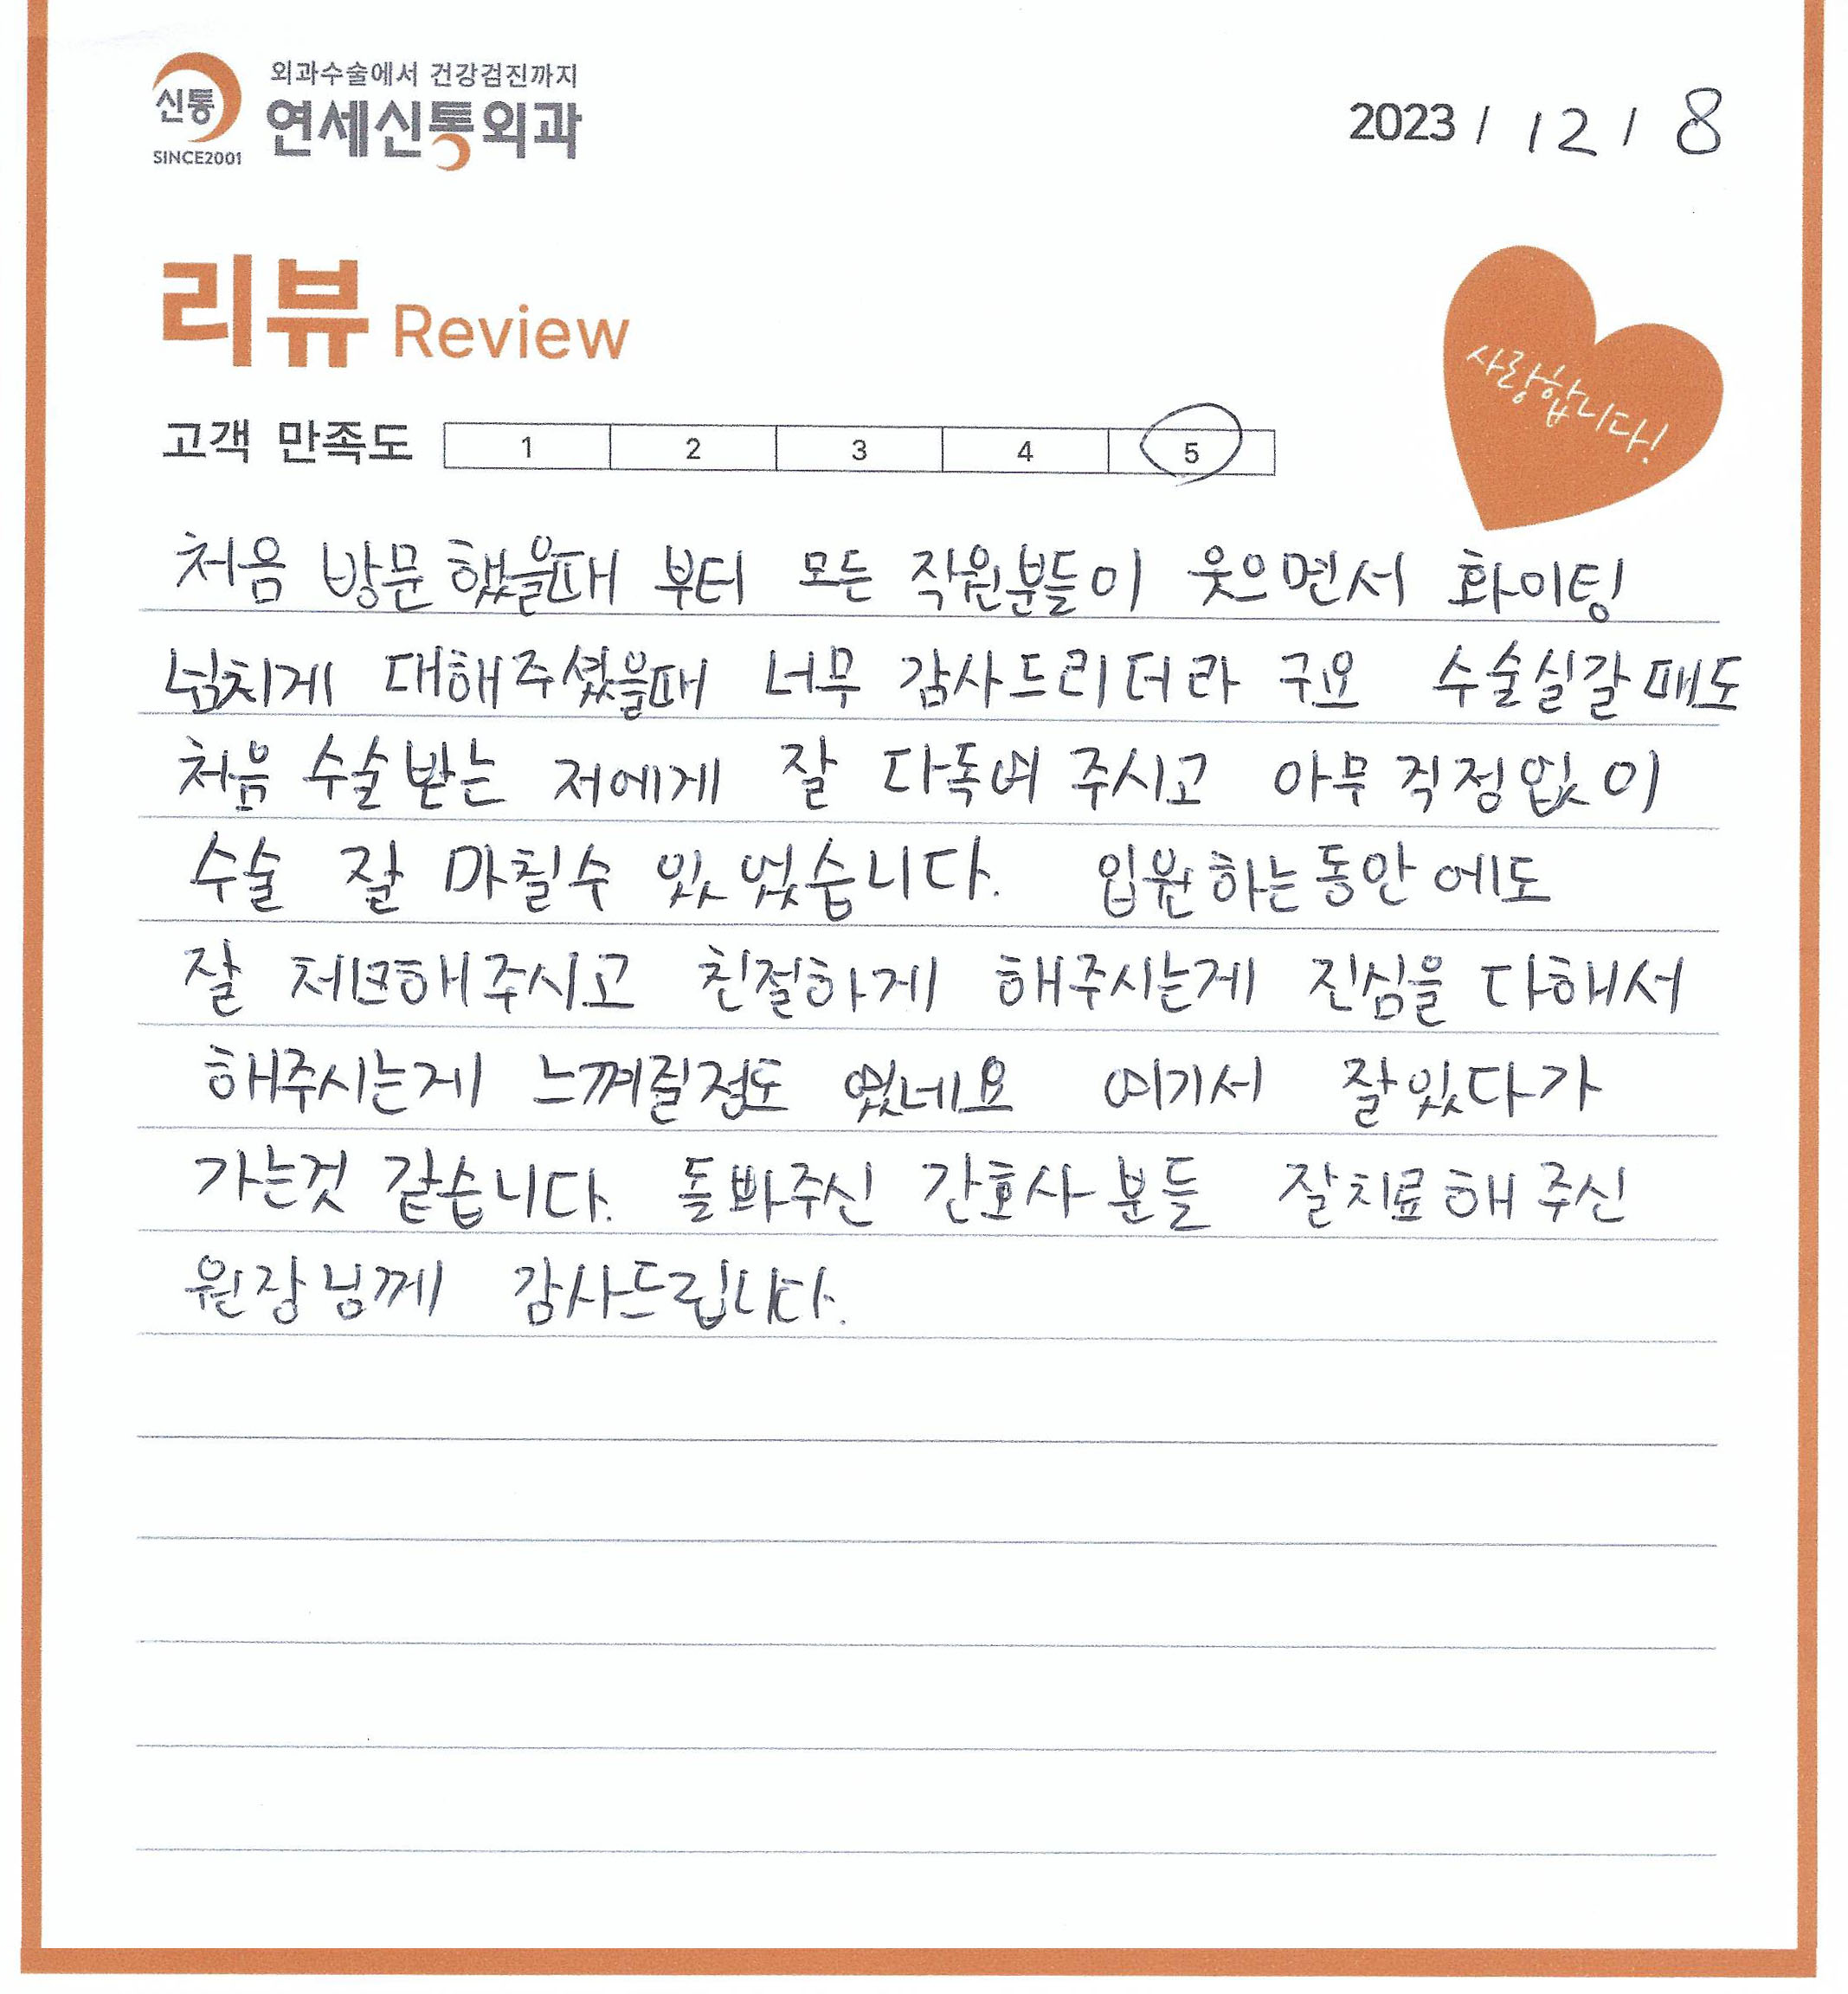 외과수술에서 건강검진까지
신통
연세신통외과
SINCE2001
2023 / 12 / 8
리뷰 Review
사랑합니다!
고객 만족도 1 2 3 4 5
처음 방문했을때 부터 모든 직원분들이 웃으면서 화이팅
넘치게 대해주셨을때 너무 감사드리더라구요 수술실갈때도
처음 수술받는 저에게 잘 다독여 주시고 아무 걱정없이
수술 잘 마칠수 있었습니다. 입원하는동안에도
잘 체크해주시고 친절하게 해주시는게 진심을 다해서
해주시는게 느껴질정도 였네요 여기서 잘있다가
가는것 같습니다. 돌봐주신 간호사분들 잘치료해주신
원장님께 감사드립니다.